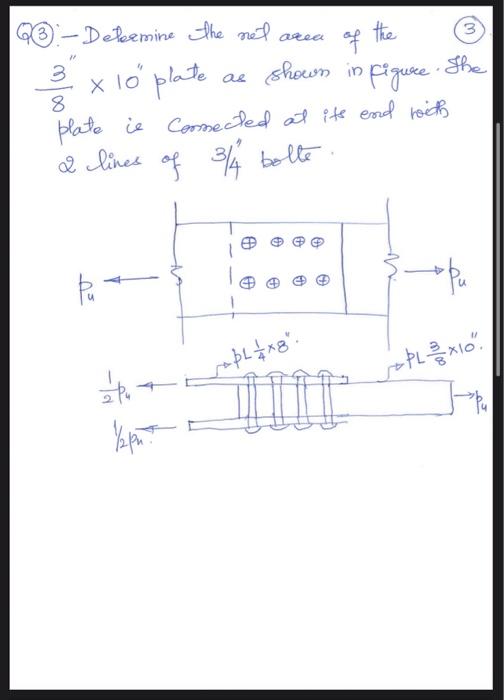 Q3:- Determine the net area of the
3
3"/8 × 10" plate as shown in figure. The
plate is connected at its end with
2 lines of 3/4" bolts.
Pu
Pu
PL 1/4 × 8".
PL 3/8 × 10".
1/2 Pu
Pu
1/2 Pu.